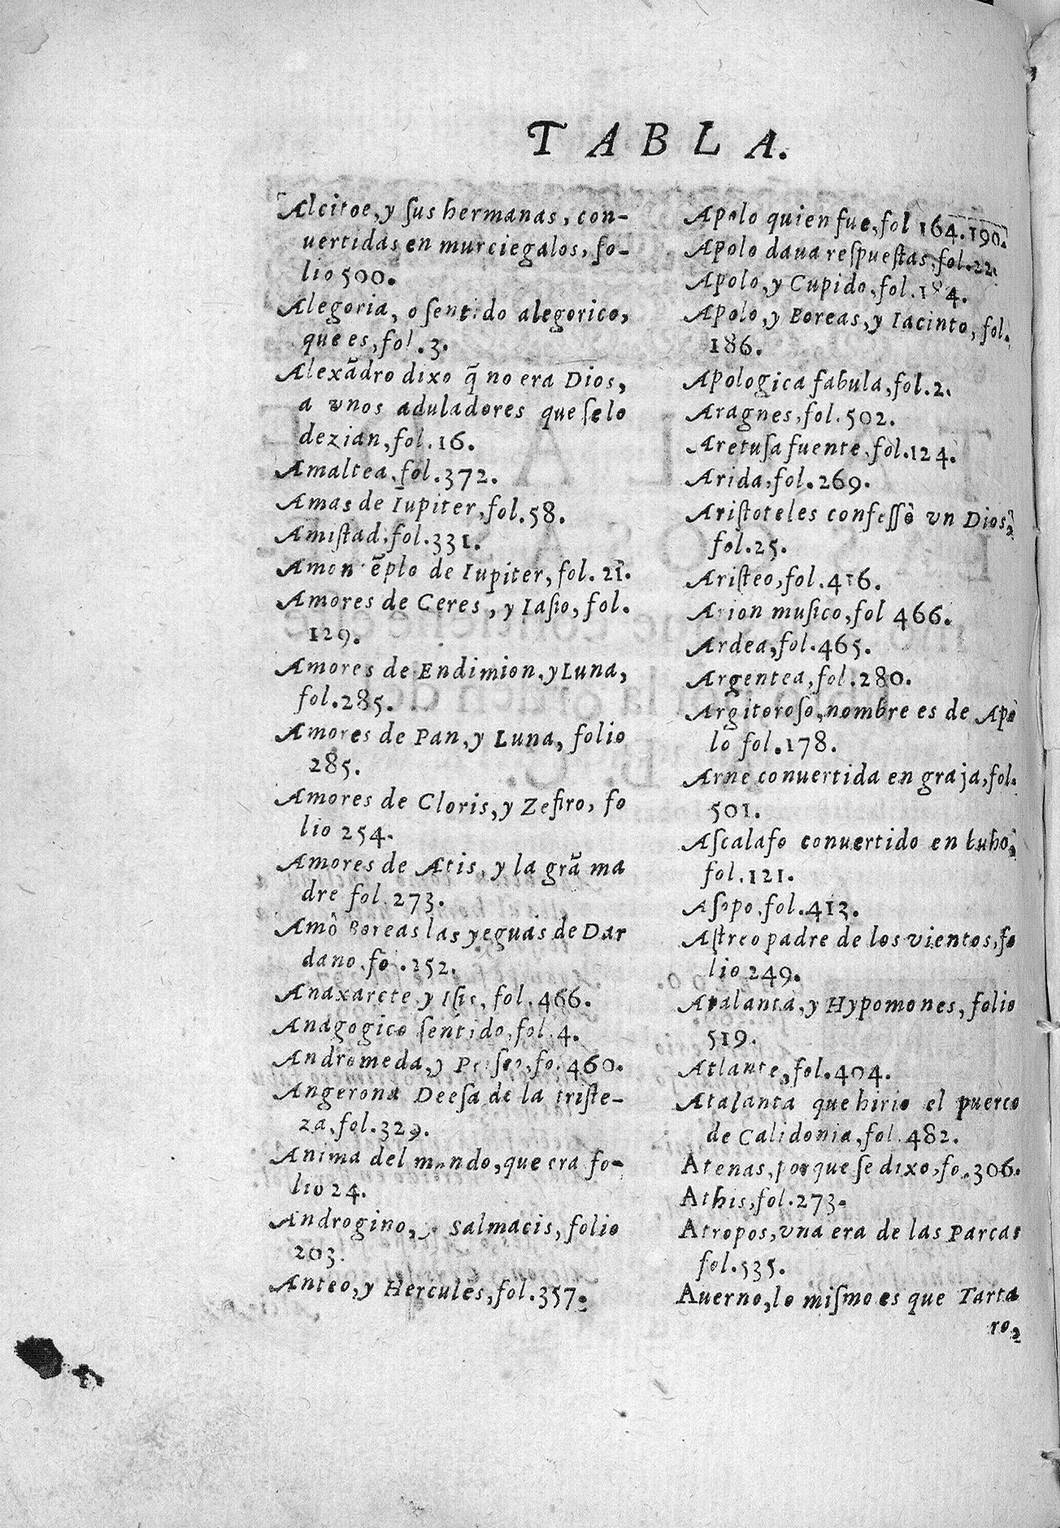 TABLA.
Alcitoe, y ſus hermanas, con-
uertidas en murciegalos, fo-
lio 500.
Alegoria, o ſentido alegorico,
que es, fol.3.
Alexãdro dixo q̃ no era Dios,
a vnos aduladores que ſelo
dezian, fol.16.
Amaltea, fol.372.
Amas de Iupiter, fol.58.
Amiſtad, fol.331.
Amon tẽplo de Iupiter, fol. 21.
Amores de Ceres, y Iaſio, fol.
129.
Amores de Endimion, y Luna,
fol.285.
Amores de Pan, y Luna, folio
285.
Amores de Cloris, y Zefiro, fo
lio 254.
Amores de Atis, y la grã ma
dre fol.273.
Amò Boreas las yeguas de Dar
dano, fo.252.
Anaxarete y Iſis, fol.466.
Anagogico ſentido, fol.4.
Andromeda, y Perſeo, fo.460.
Angerona Deeſa de la triſte-
za, fol.329.
Anima del mundo, que era fo-
lio 24.
Androgino, y Salmacis, folio
203.
Anteo, y Hercules, fol.357.
Apolo quien fue, fol 164.190.
Apolo daua reſpueſtas, fol.22.
Apolo, y Cupido, fol.184.
Apolo, y Boreas, y Iacinto, fol.
186.
Apologica fabula, fol.2.
Aragnes, fol.502.
Aretuſa fuente, fol.124.
Arida, fol.269.
Ariſtoteles confeſſò vn Dios,
fol.25.
Ariſteo, fol.416.
Arion muſico, fol 466.
Ardea, fol.465.
Argentea, fol.280.
Argitoroſo, nombre es de Apo
lo fol.178.
Arne conuertida en graja, fol.
501.
Aſcalafo conuertido en buho,
fol.121.
Aſopo, fol.413.
Aſtreo padre de los vientos, fo
lio 249.
Atalanta, y Hypomones, folio
519.
Atlante, fol.404.
Atalanta que hirio el puerco
de Calidonia, fol.482.
Atenas, porque ſe dixo, fo.306.
Athis, fol.273.
Atropos, vna era de las Parcas
fol.535.
Auerno, lo miſmo es que Tarta
ro,